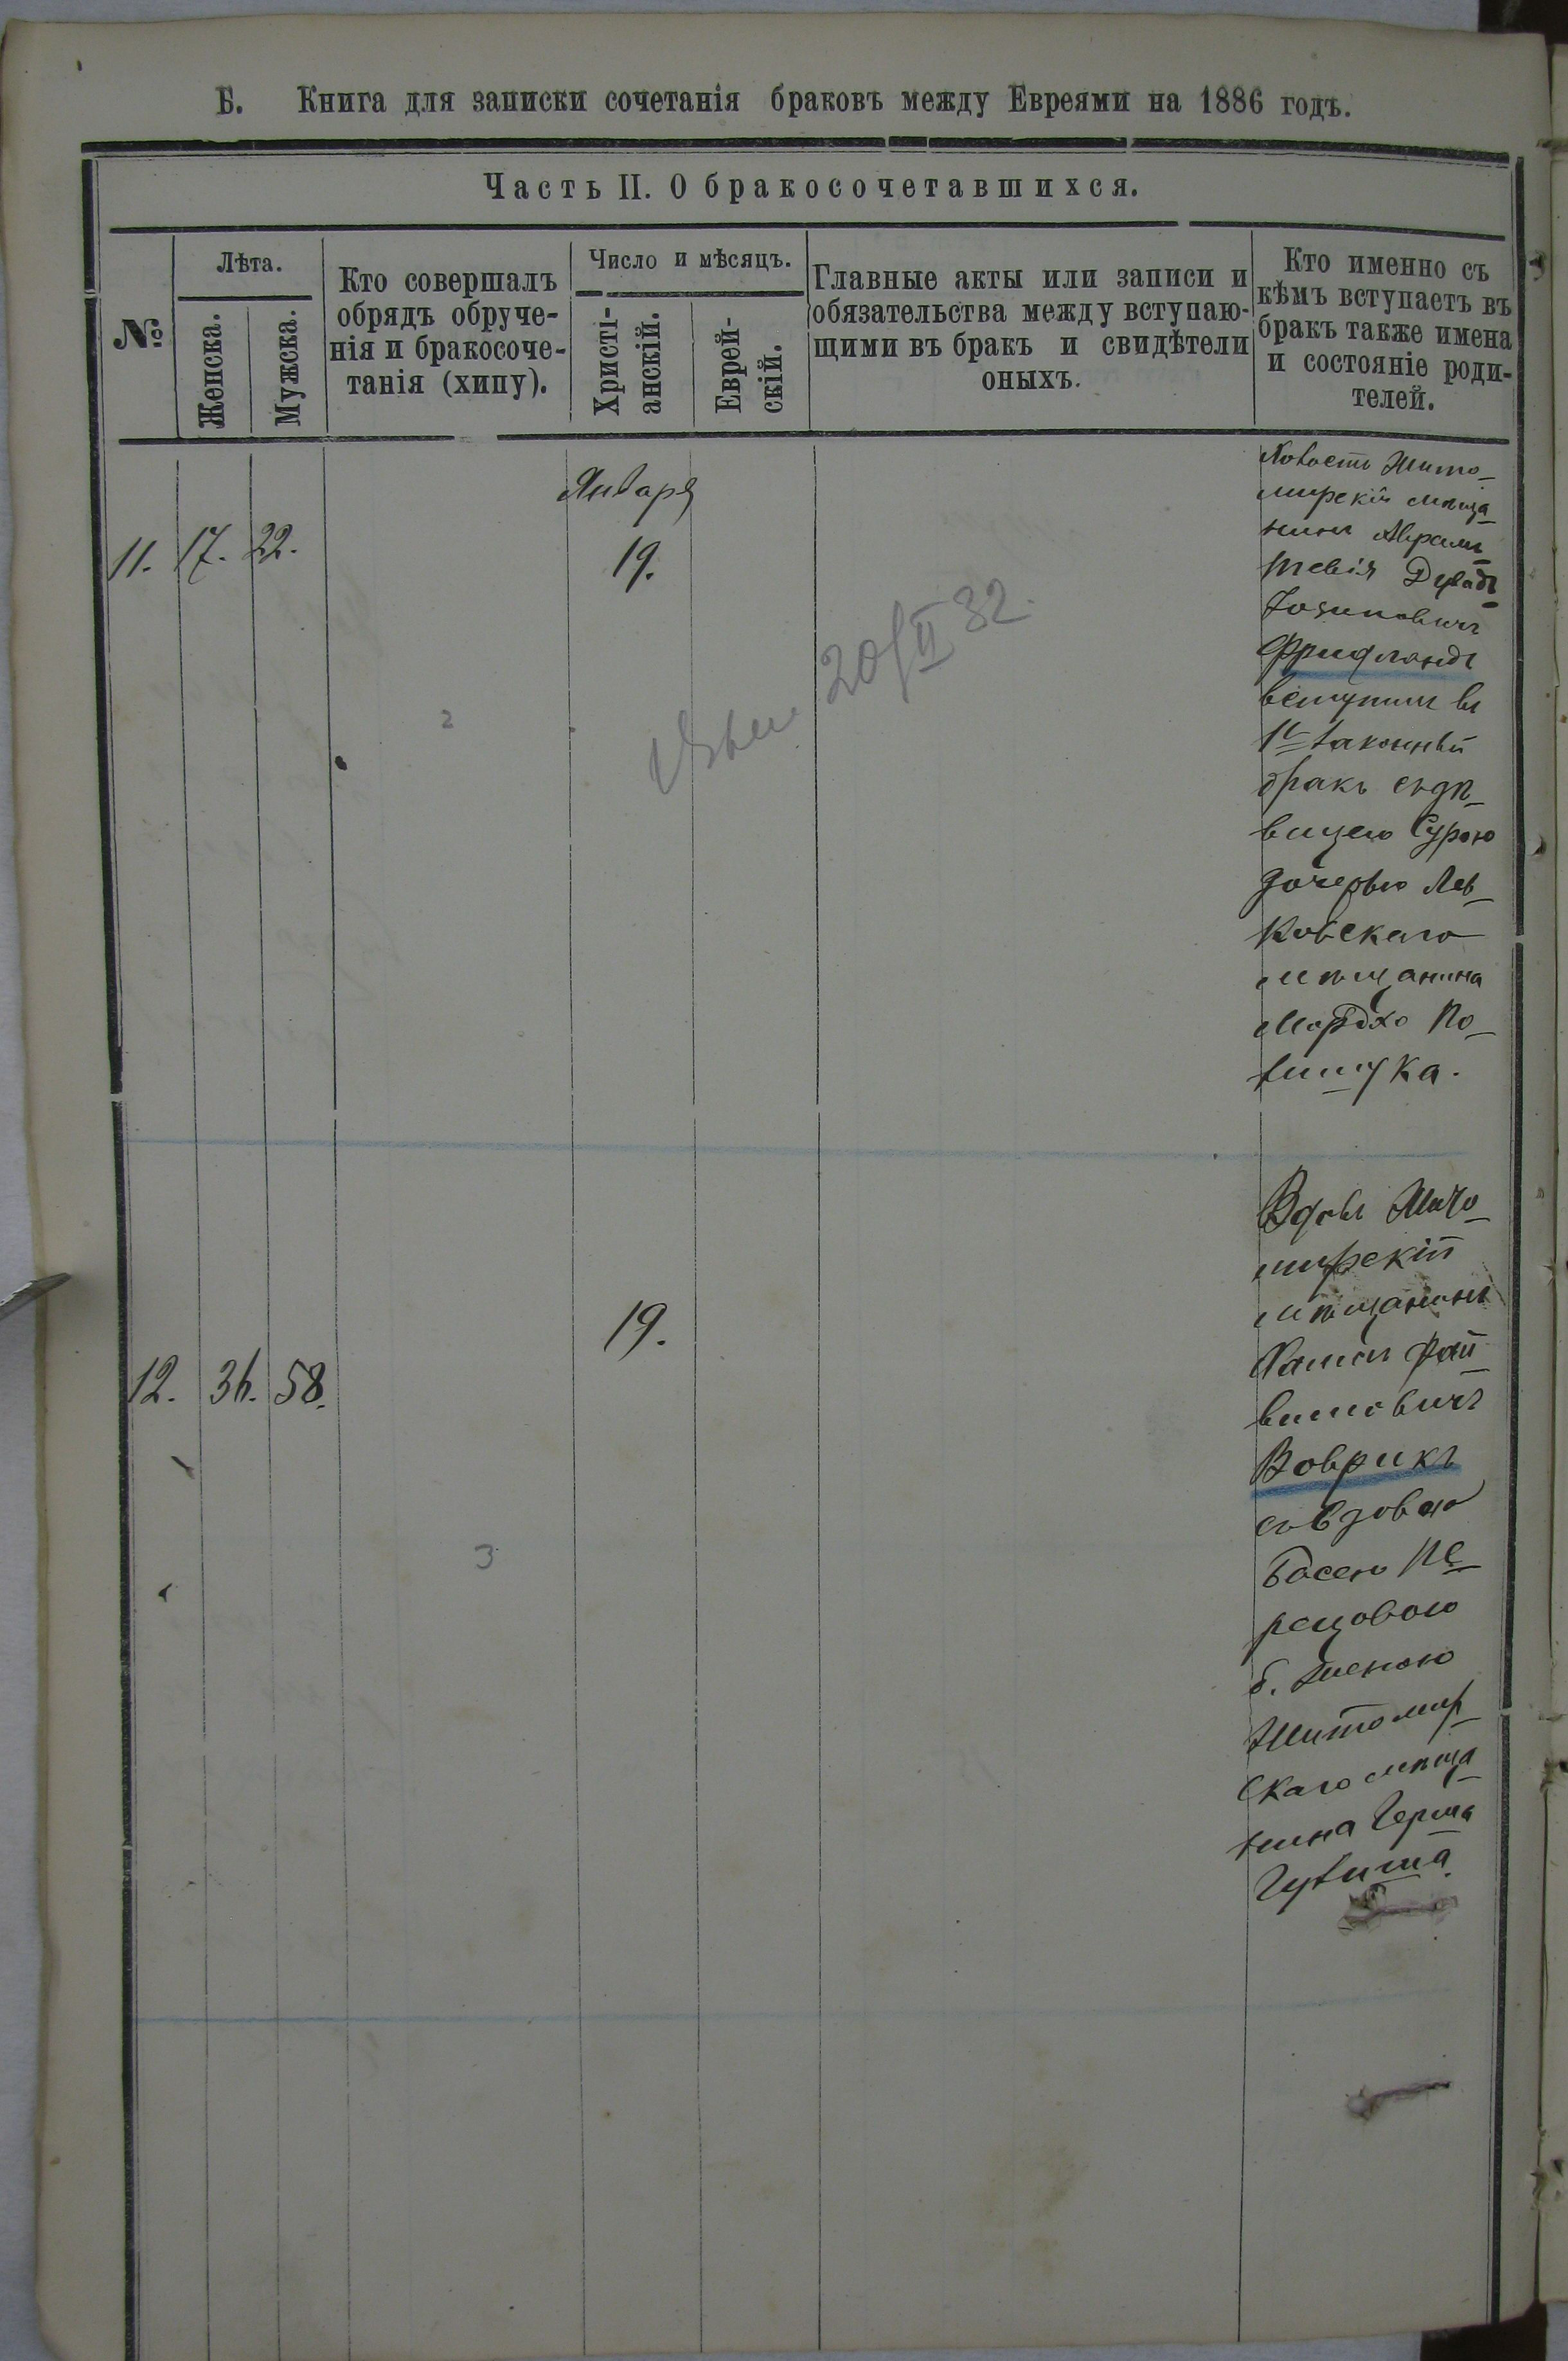 Б. Книга для записки сочетанія браковъ между Евреями на 1886 годъ.
Часть II. О бракосочетавшихся.
№
Лѣта.
Женска.
Мужска.
Кто совершалъ
обрядъ обруче-
нія и бракосоче-
танія (хипу).
Число и мѣсяцъ.
Христі-
анскій.
Еврей-
скій.
Главные акты или записи и
обязательства между вступаю-
щими въ бракъ и свидѣтели
оныхъ.
Кто именно съ
кѣмъ вступаетъ въ
бракъ также имена
и состояніе роди-
телей.
Января
11. 17. 22.
19.
Холостъ Жито-
мирскій мѣща-
нинъ Аврамъ
Тевія Дувидъ
Іосиповичъ
Фридландъ
вступилъ въ
1й законный
бракъ съ дѣ-
вицею Сурою
дочерью Лев-
ковскаго
мѣщанина
Мордхо По-
лищука.
2
20/II 32.
12. 36. 58.
19.
3
Вдовъ Жито-
мирскій
мѣщанинъ
вишовичъ
Воврикъ
съ вдовою
Басею Пе-
рецовою
б. женою
Житомир-
скаго мѣща-
нина Герша